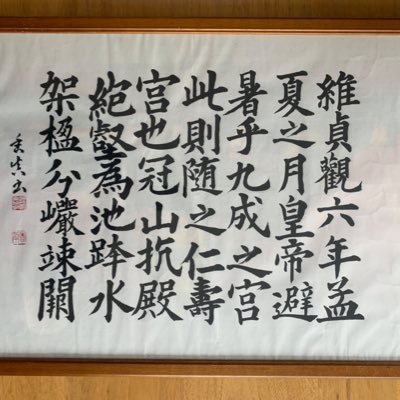 維貞觀六年孟
夏之月皇帝避
暑乎九成之宮
此則随之仁壽
宮也冠山抗殿
絕壑為池跨水
架楹分巖竦闕